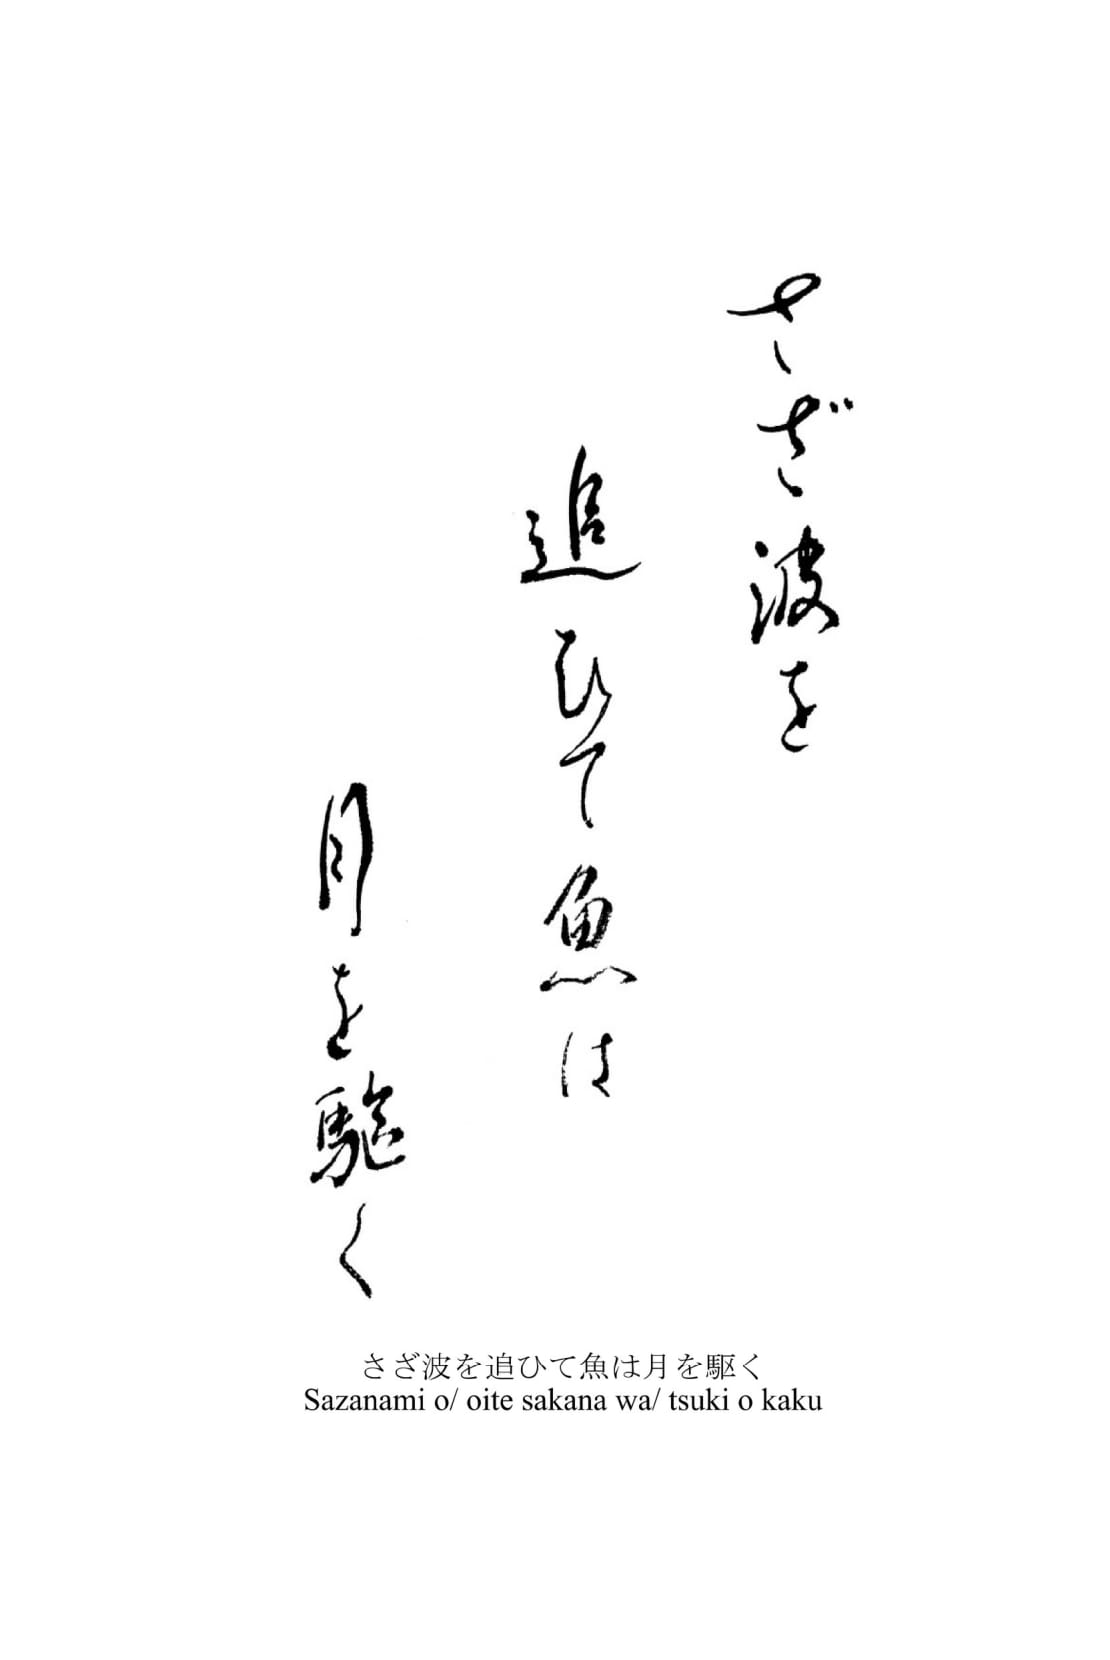 さざ波を
追ひて魚は
月を駆く
さざ波を追ひて魚は月を駆く
Sazanami o/ oite sakana wa/ tsuki o kaku